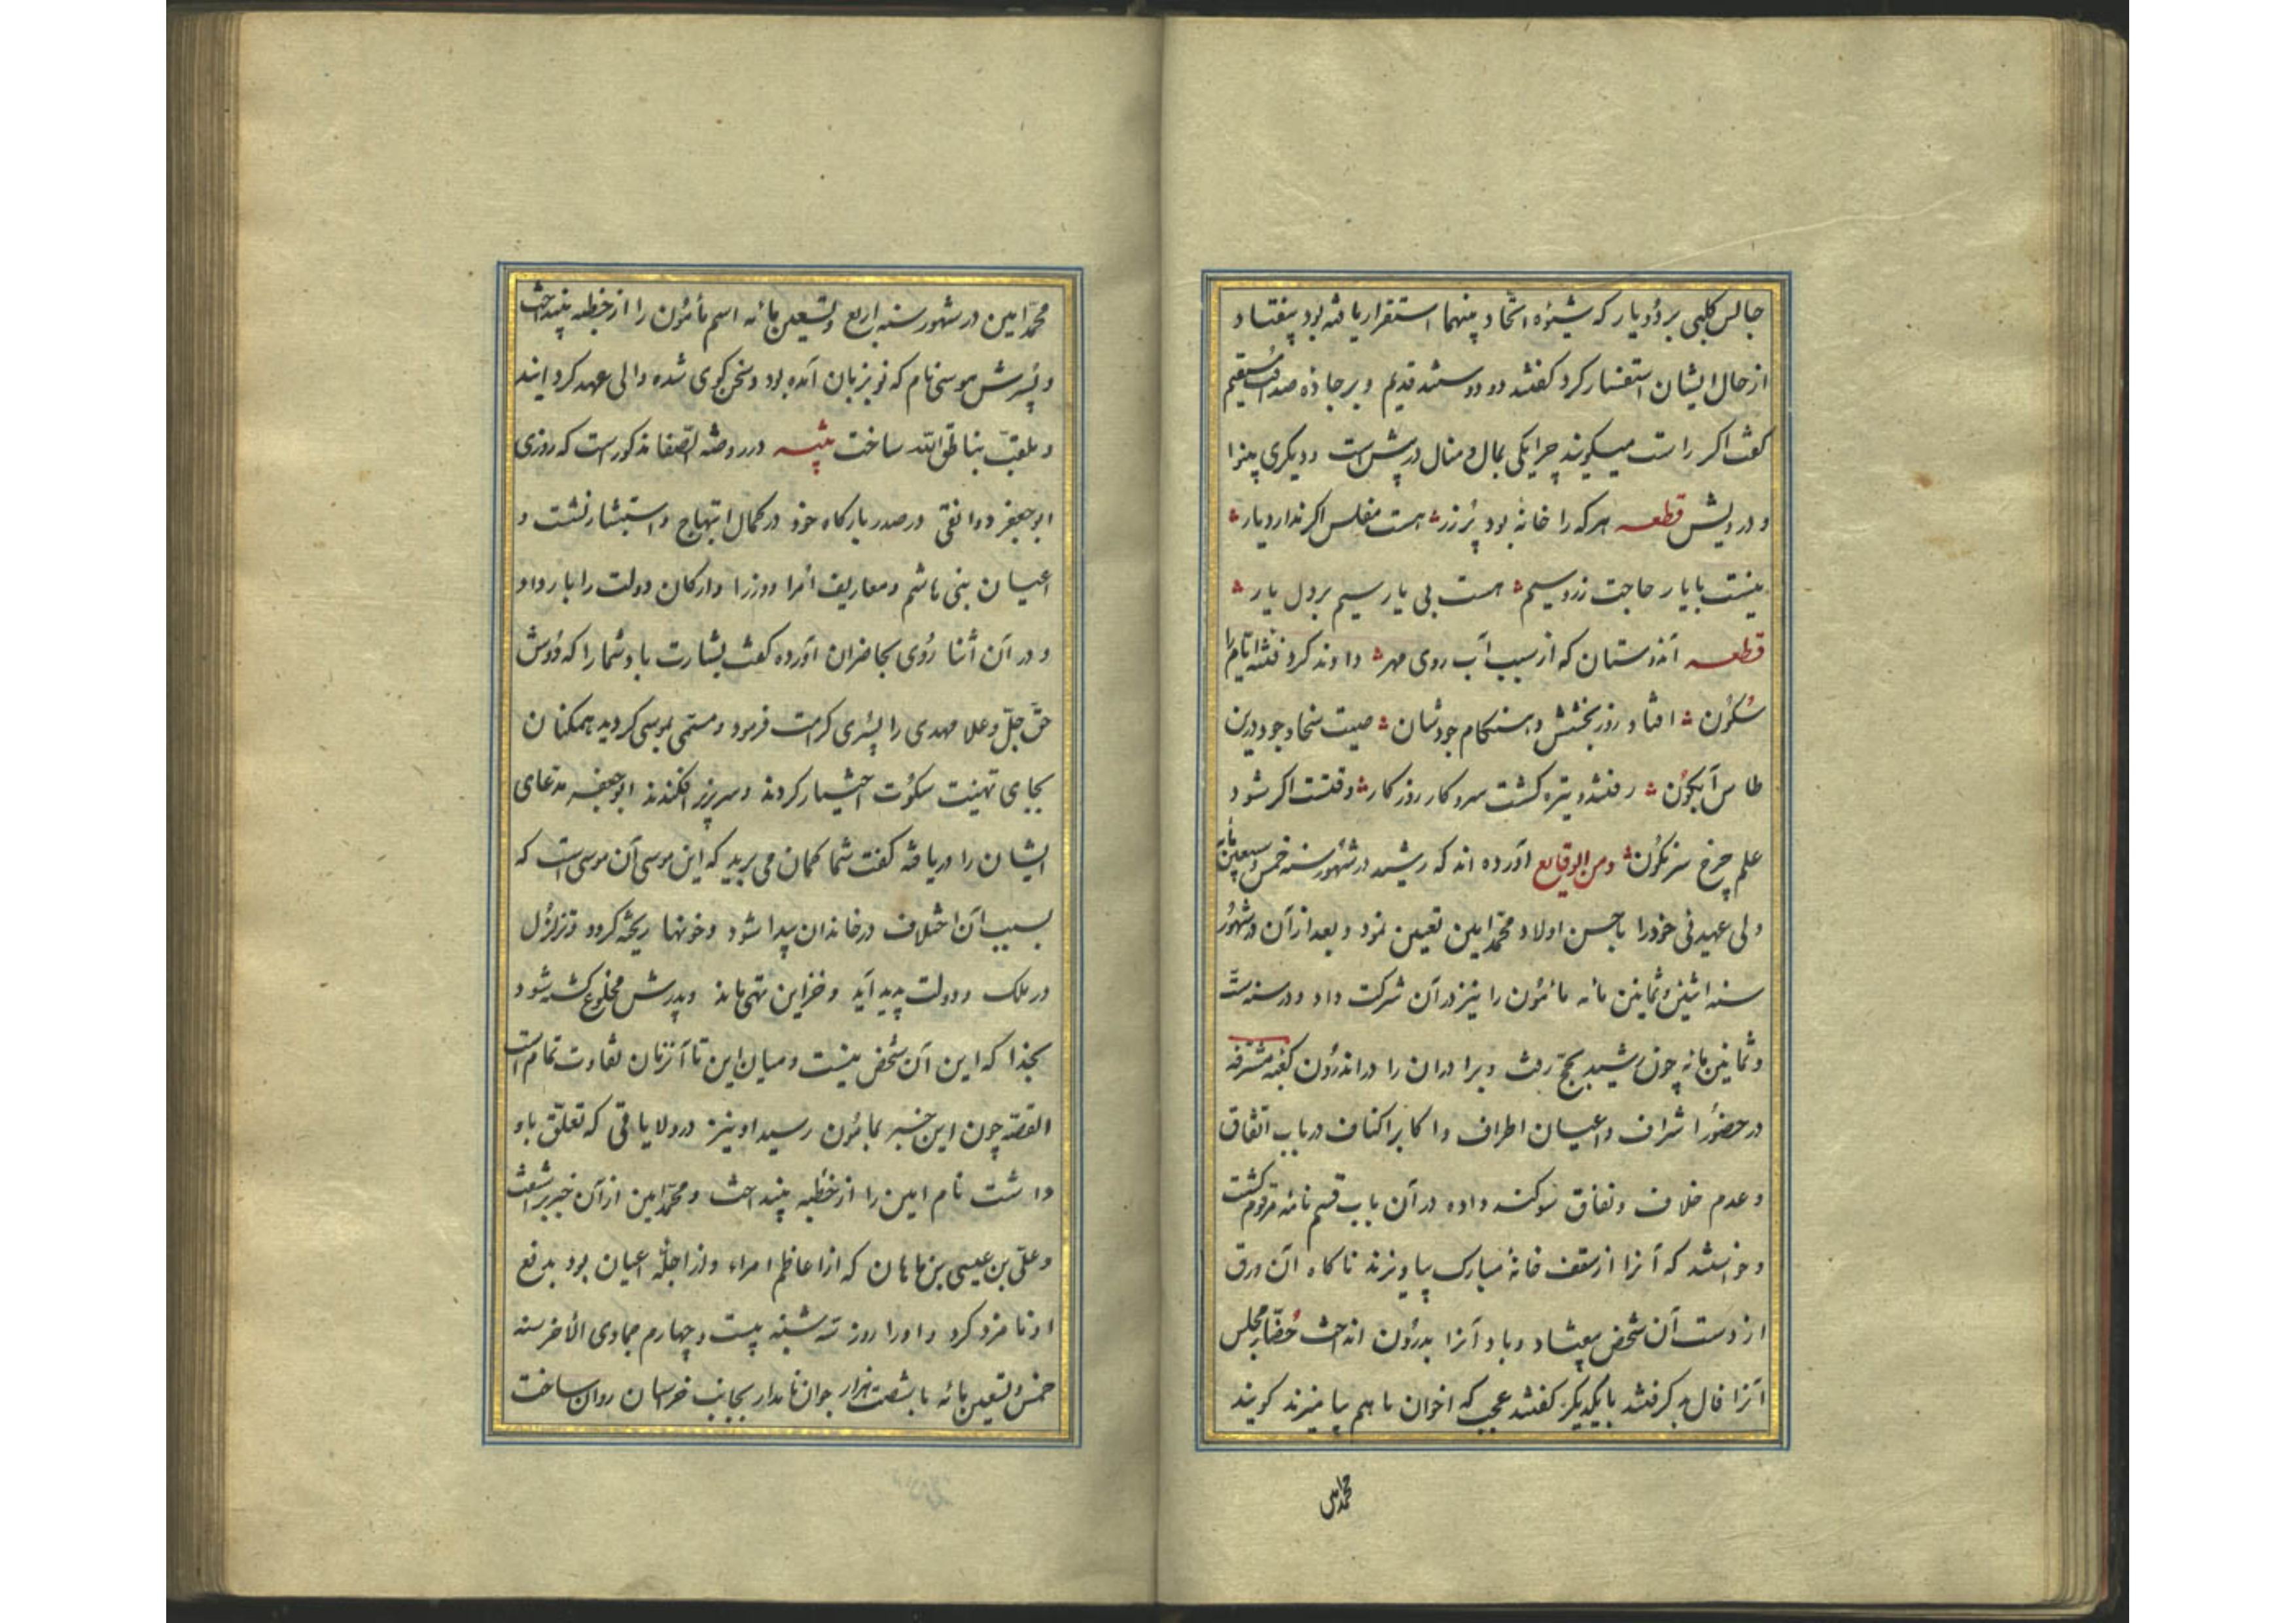 جالس کلبی بر دو یار که شیوه اتحاد بینهما استقرار یافته بود بیفتاد و
از حال ایشان استفسار کرد گفتند دو دوستند قدیم و بر جاده صداقت مستقیم
گفت اگر راست میگویند چرا یکی بمال و منال در پیش است و دیگری بینوا
و درویش قطعه هر که را خانهٔ بود پُر زر ؞ هست مفلس اگر ندارد یار ؞
نیست با یار حاجت زر و سیم ؞ هست بی یار سیم بر دل بار ؞
قطعه آن دوستان که از سبب آب روی مهر ؞ دادند گرد فتنه ایام را
سُکُون ؞ افتاد روز بخشش و هنگام جودشان ؞ صیت سخا و جود درین
طاس آبگون ؞ رفتند و تیره گشت سر و کار روزگار ؞ وقتست اگر شود
علم چرخ سرنگون ؞ ومن الوقایع آورده اند که رشید در شهور سنه خمس و سبعین مائه
ولی عهدئی خود را باحسن اولاد محمد امین تعیین نمود و بعد از آن در شهور
سنه اثنین و ثمانین مائه مأمون را نیز در آن شرکت داد و در سنه ستّ
و ثمانین مائه چون رشید بحج رفت و برادران را در اندرون کعبه مشرفه
در حضور اشراف و اعیان اطراف و اکابر اکناف در باب اتفاق
و عدم خلاف و نفاق سوگند داده در آن باب قسم نامه مرقوم گشت
و خواستند که آنرا از سقف خانهٔ مبارک بیاویزند ناگاه آن ورق
از دست آن شخص بیفتاد و باد آنرا بدرون انداخت حُضّار مجلس
آنرا فال بد گرفتند با یکدیگر گفتند عجب که اخوان با هم بیامیزند گویند
محمد امین
محمّد امین در شهور سنه اربع و تسعین مائه اسم مأمون را از خطبه بینداخت
و پسرش موسی نام که نو بزبان آمده بود و سخن گوی شده والی عهد گردانید
و ملقب بناطق الله ساخت تنبیه در روضة الصفا مذکورست که روزی
ابوجعفر دوانقی در صدر بارگاه خود در کمال ابتهاج و استبشار نشست و
اعیان بنی هاشم و معاریف امرا و وزرا و ارکان دولت را بار داد و
و در آن اثنا روی بحاضران آورده گفت بشارت باد شما را که دوش
حق جلّ و علا مهدی را پسری کرامت فرمود و مسمی بموسی گردید همکنان
بجای تهنیت سکوت اختیار کردند و سر بزیر افکندند ابوجعفر مدعای
ایشان را دریافته گفت شما گمان می برید که این موسی آن موسی است که
بسبب آن اختلاف در خاندان پیدا شود و خونها ریخته گردد و تزلزل
در ملک و دولت پدید آید و خزاین تهی ماند و پدرش مخلوع کشته شود
بخدا که این آن شخص نیست و میان این تا آنزمان تفاوت تمام است
القصه چون این خبر بمأمون رسید او نیز در ولایاتی که تعلّق باو
داشت نام امین را از خطبه بینداخت و محمّد امین از آن خبر برآشفت
و علی بن عیسی بن ماهان که از اعاظم امراء و از اجلّه اعیان بود بدفع
او نامزد کرد و او را روز سه شنبه بیست و چهارم جمادی الآخر سنه
خمس و تسعین مائه با شصت هزار جوان نامدار بجانب خراسان روان ساخت